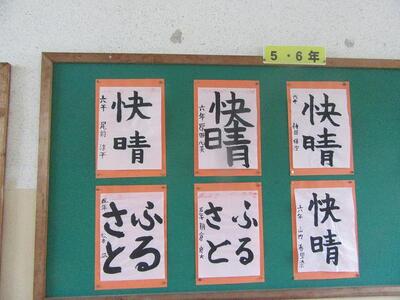 5・6年
快晴
六年
快晴
六年
快晴
六年
ふる
さと
五年
ふる
さと
五年
快晴
六年